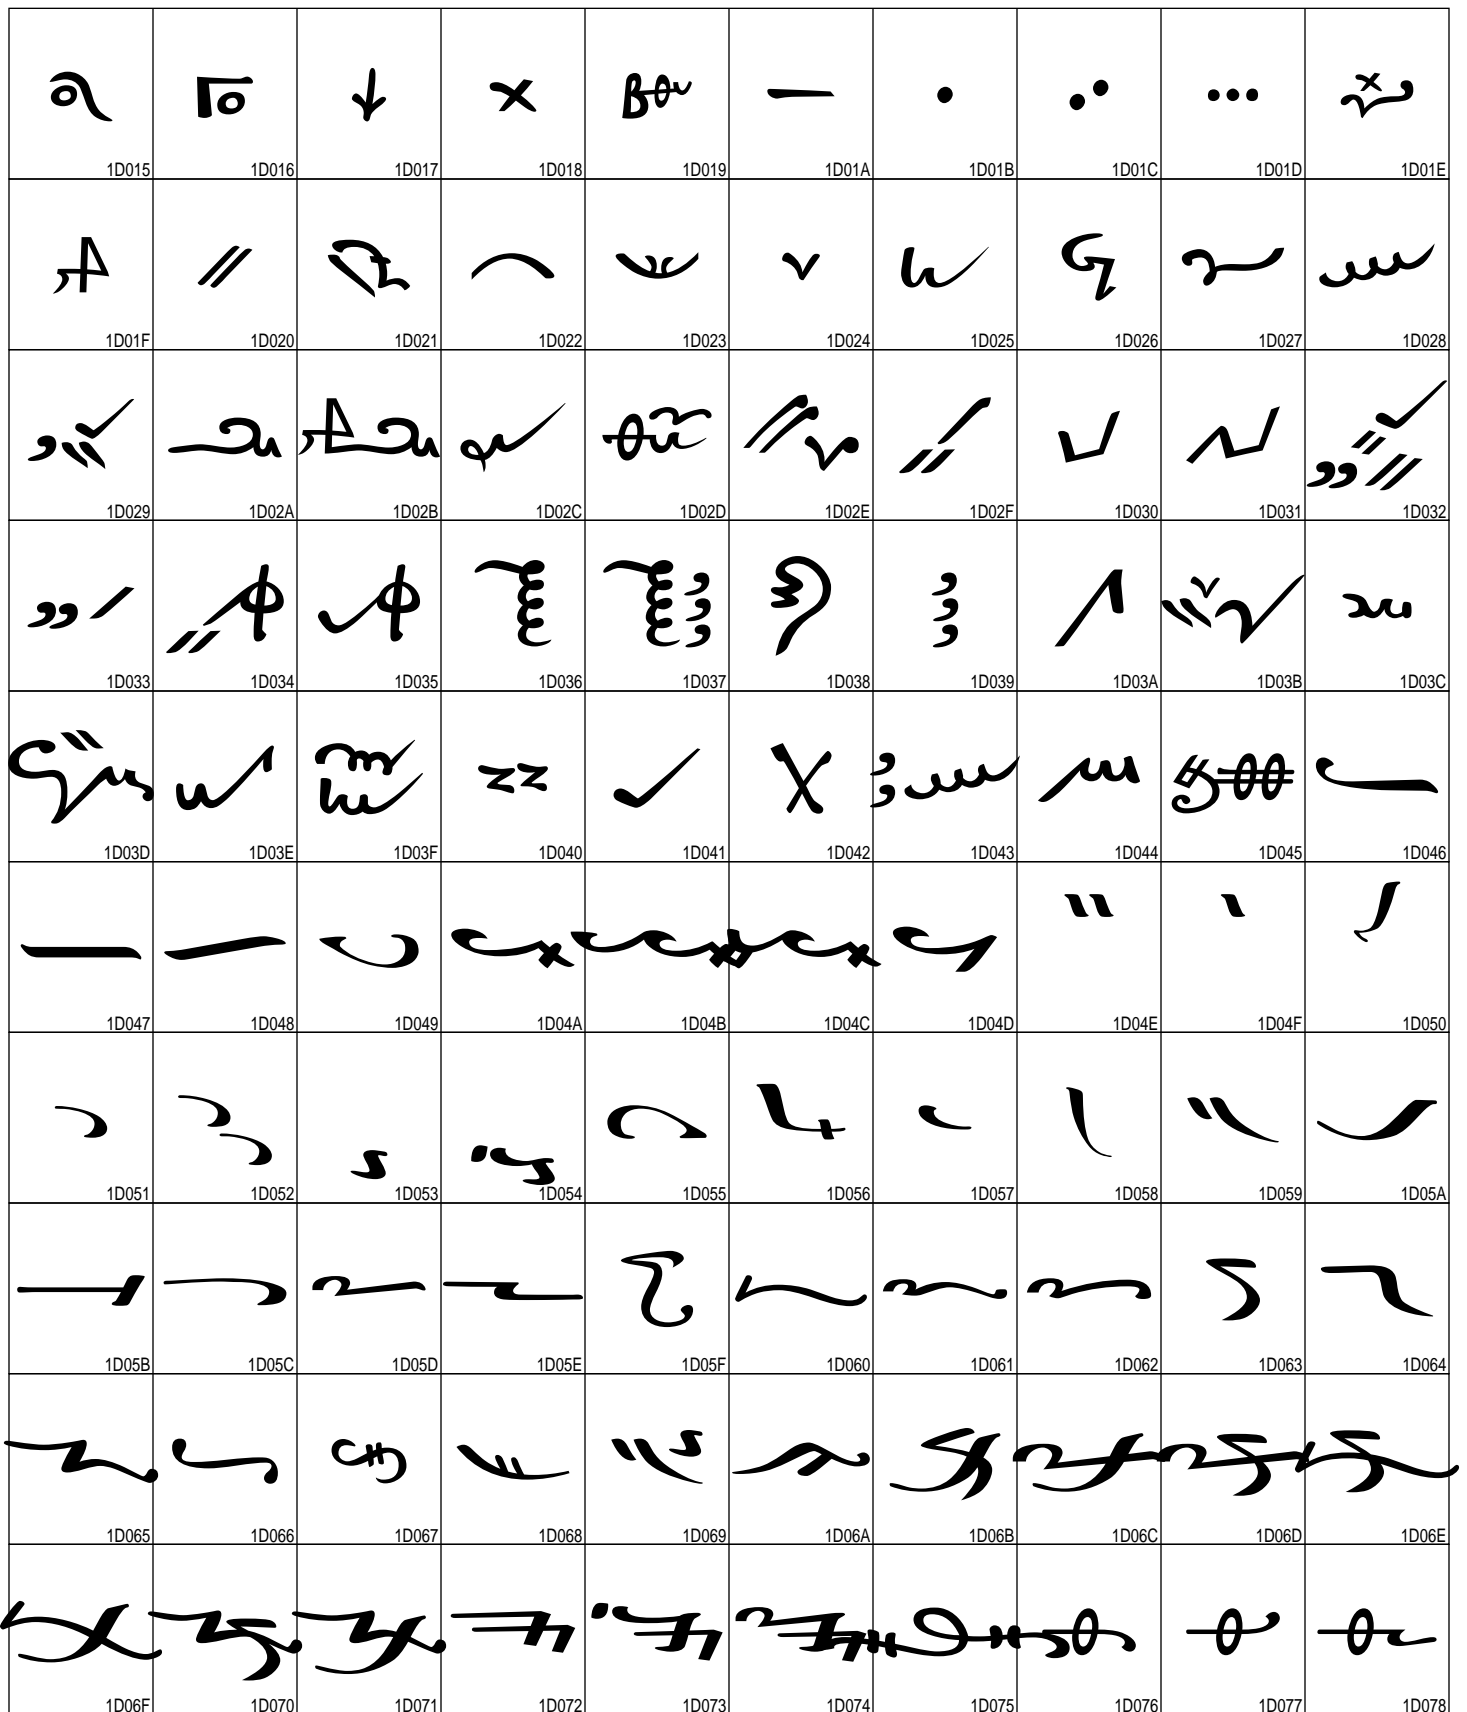 𝀕 𝀖 𝀗 𝀘 𝀙 𝀚 𝀛 𝀜 𝀝 𝀞
1D015 1D016 1D017 1D018 1D019 1D01A 1D01B 1D01C 1D01D 1D01E
𝀟 𝀠 𝀡 𝀢 𝀣 𝀤 𝀥 𝀦 𝀧 𝀨
1D01F 1D020 1D021 1D022 1D023 1D024 1D025 1D026 1D027 1D028
𝀩 𝀪 𝀫 𝀬 𝀭 𝀮 𝀯 𝀰 𝀱 𝀲
1D029 1D02A 1D02B 1D02C 1D02D 1D02E 1D02F 1D030 1D031 1D032
𝀳 𝀴 𝀵 𝀶 𝀷 𝀸 𝀹 𝀺 𝀻 𝀼
1D033 1D034 1D035 1D036 1D037 1D038 1D039 1D03A 1D03B 1D03C
𝀽 𝀾 𝀿 𝁀 𝁁 𝁂 𝁃 𝁄 𝁅 𝁆
1D03D 1D03E 1D03F 1D040 1D041 1D042 1D043 1D044 1D045 1D046
𝁇 𝁈 𝁉 𝁊 𝁋 𝁌 𝁍 𝁎 𝁏 𝁐
1D047 1D048 1D049 1D04A 1D04B 1D04C 1D04D 1D04E 1D04F 1D050
𝁑 𝁒 𝁓 𝁔 𝁕 𝁖 𝁗 𝁘 𝁙 𝁚
1D051 1D052 1D053 1D054 1D055 1D056 1D057 1D058 1D059 1D05A
𝁛 𝁜 𝁝 𝁞 𝁟 𝁠 𝁡 𝁢 𝁣 𝁤
1D05B 1D05C 1D05D 1D05E 1D05F 1D060 1D061 1D062 1D063 1D064
𝁥 𝁦 𝁧 𝁨 𝁩 𝁪 𝁫 𝁬 𝁭 𝁮
1D065 1D066 1D067 1D068 1D069 1D06A 1D06B 1D06C 1D06D 1D06E
𝁯 𝁰 𝁱 𝁲 𝁳 𝁴 𝁵 𝁶 𝁷 𝁸
1D06F 1D070 1D071 1D072 1D073 1D074 1D075 1D076 1D077 1D078